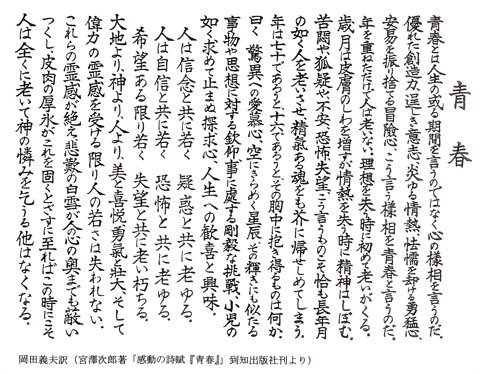 青春
青春とは人生の或る期間を言うのではなく心の様相を言うのだ。
優れた創造力、逞しき意志、炎ゆる情熱、怯懦を却ける勇猛心、
安易を振り捨てる冒険心、こう言う様相を青春と言うのだ。
年を重ねただけで人は老いない。理想を失う時に初めて老いがくる。
歳月は皮膚のしわを増すが情熱を失う時に精神はしぼむ。
苦悶や、狐疑や、不安、恐怖、失望、こう言うものこそ恰も長年月
の如く人を老いさせ、精気ある魂をも芥に帰せしめてしまう。
年は七十であろうと、十六であろうと、その胸中に抱き得るものは何か。
曰く「驚異への愛慕心」空にきらめく星辰、その輝きにも似たる
事物や思想に対する欽仰、事に處する剛毅な挑戦、小児の
如く求めて止まぬ探求心、人生への歓喜と興味。
人は信念と共に若く　疑惑と共に老ゆる。
人は自信と共に若く　恐怖と共に老ゆる。
希望ある限り若く　失望と共に老い朽ちる。
大地より、神より、人より、美と喜悦、勇気と壮大、そして
偉力の霊感を受ける限り人の若さは失われない。
これらの霊感が絶え、悲歎の白雪が人の心の奥までも蔽い
つくし、皮肉の厚氷がこれを固くとざすに至ればこの時にこそ
人は全くに老いて神の憐みを乞う他はなくなる。
岡田義夫訳（宮澤次郎著「感動の詩賦『青春』」到知出版社刊より）